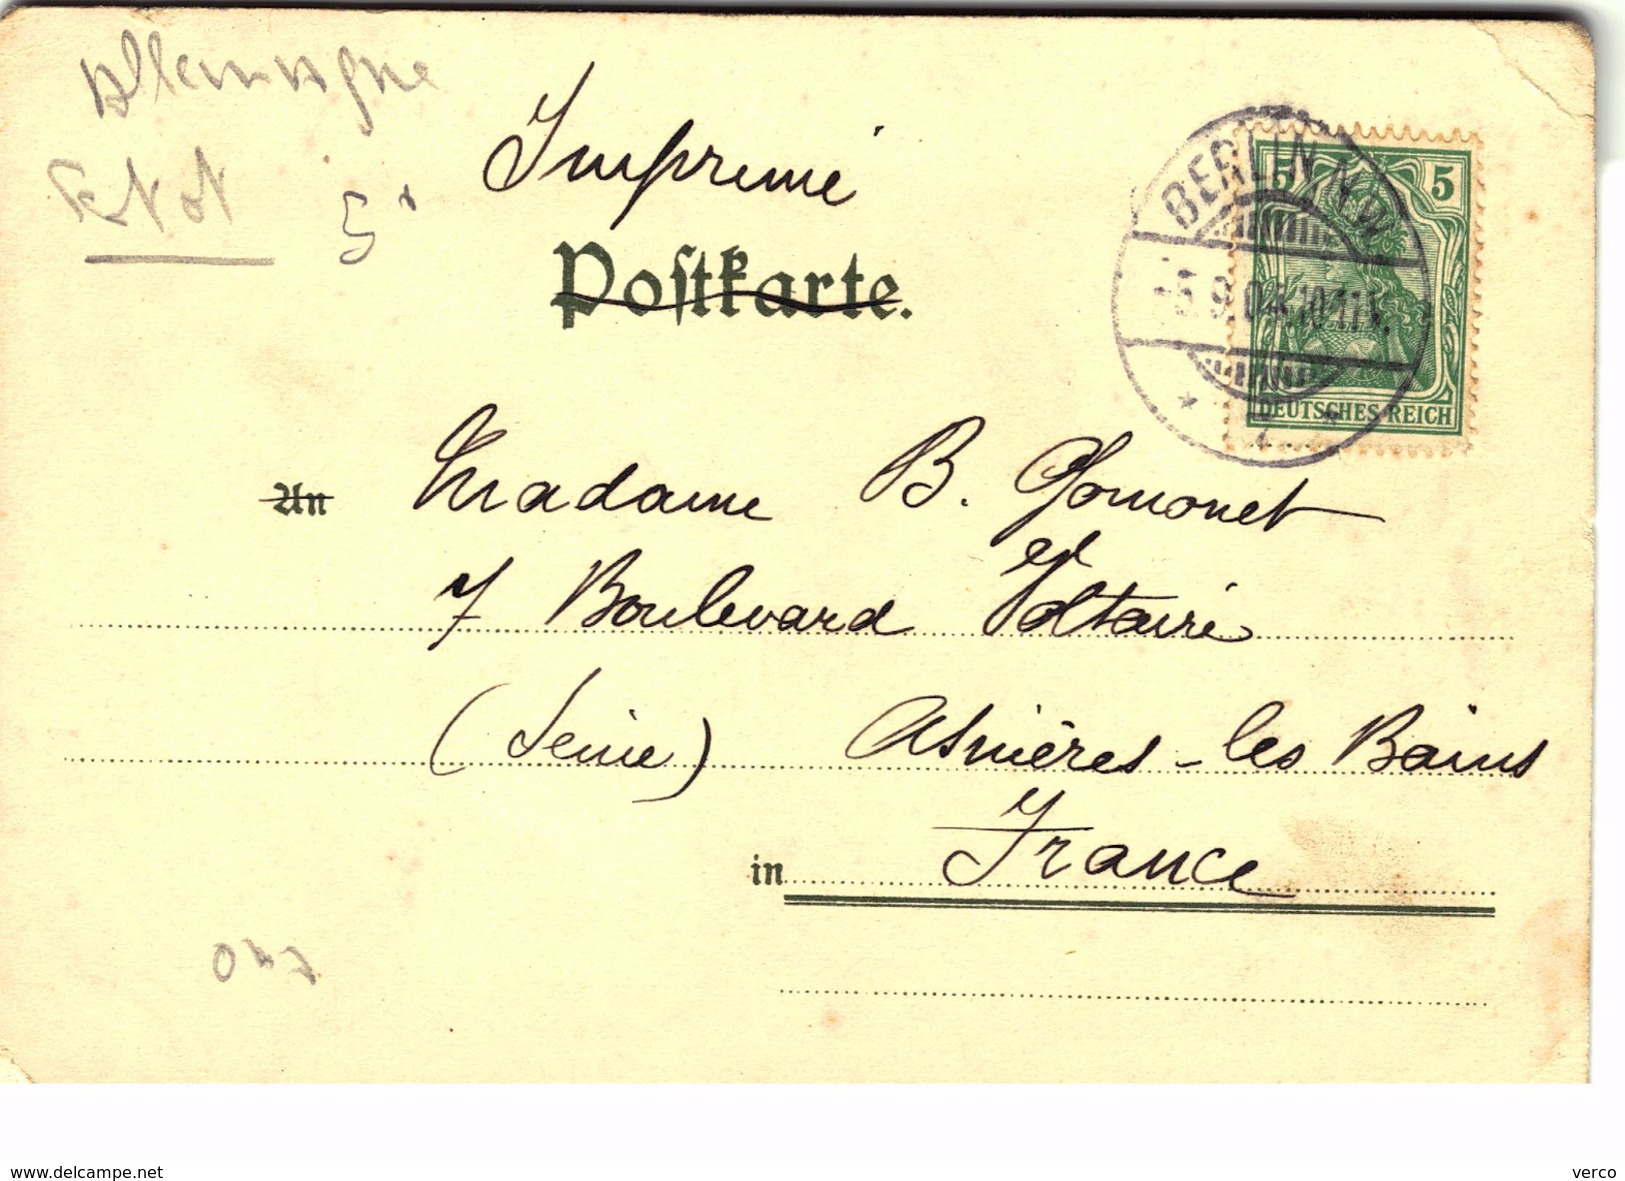 Allemagne
Imprimé
5
5
5
BERLIN N.W.
Postkarte.
9.04.10-11V.
DEUTSCHES REICH
An Madame B. Gomonet
7 Boulevard Voltaire
(Seine) Asnières-les Bains
in France
www.delcampe.net
verco